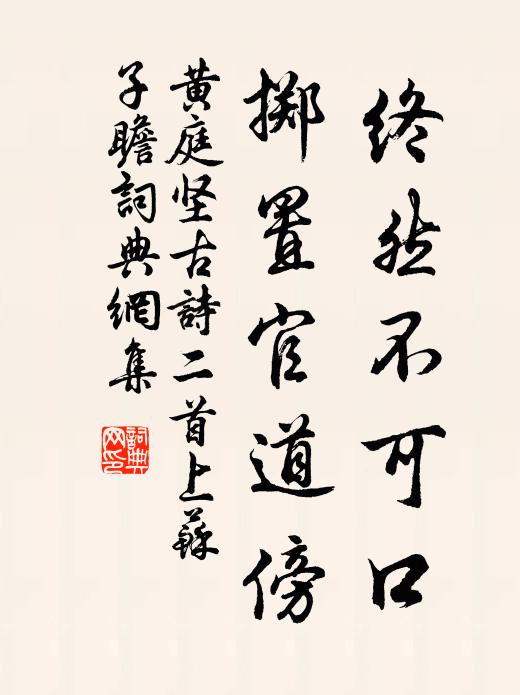 终然不可口
掷置官道傍
黄庭坚古詩二首上蘇
子瞻詞典網集
詞典
网印